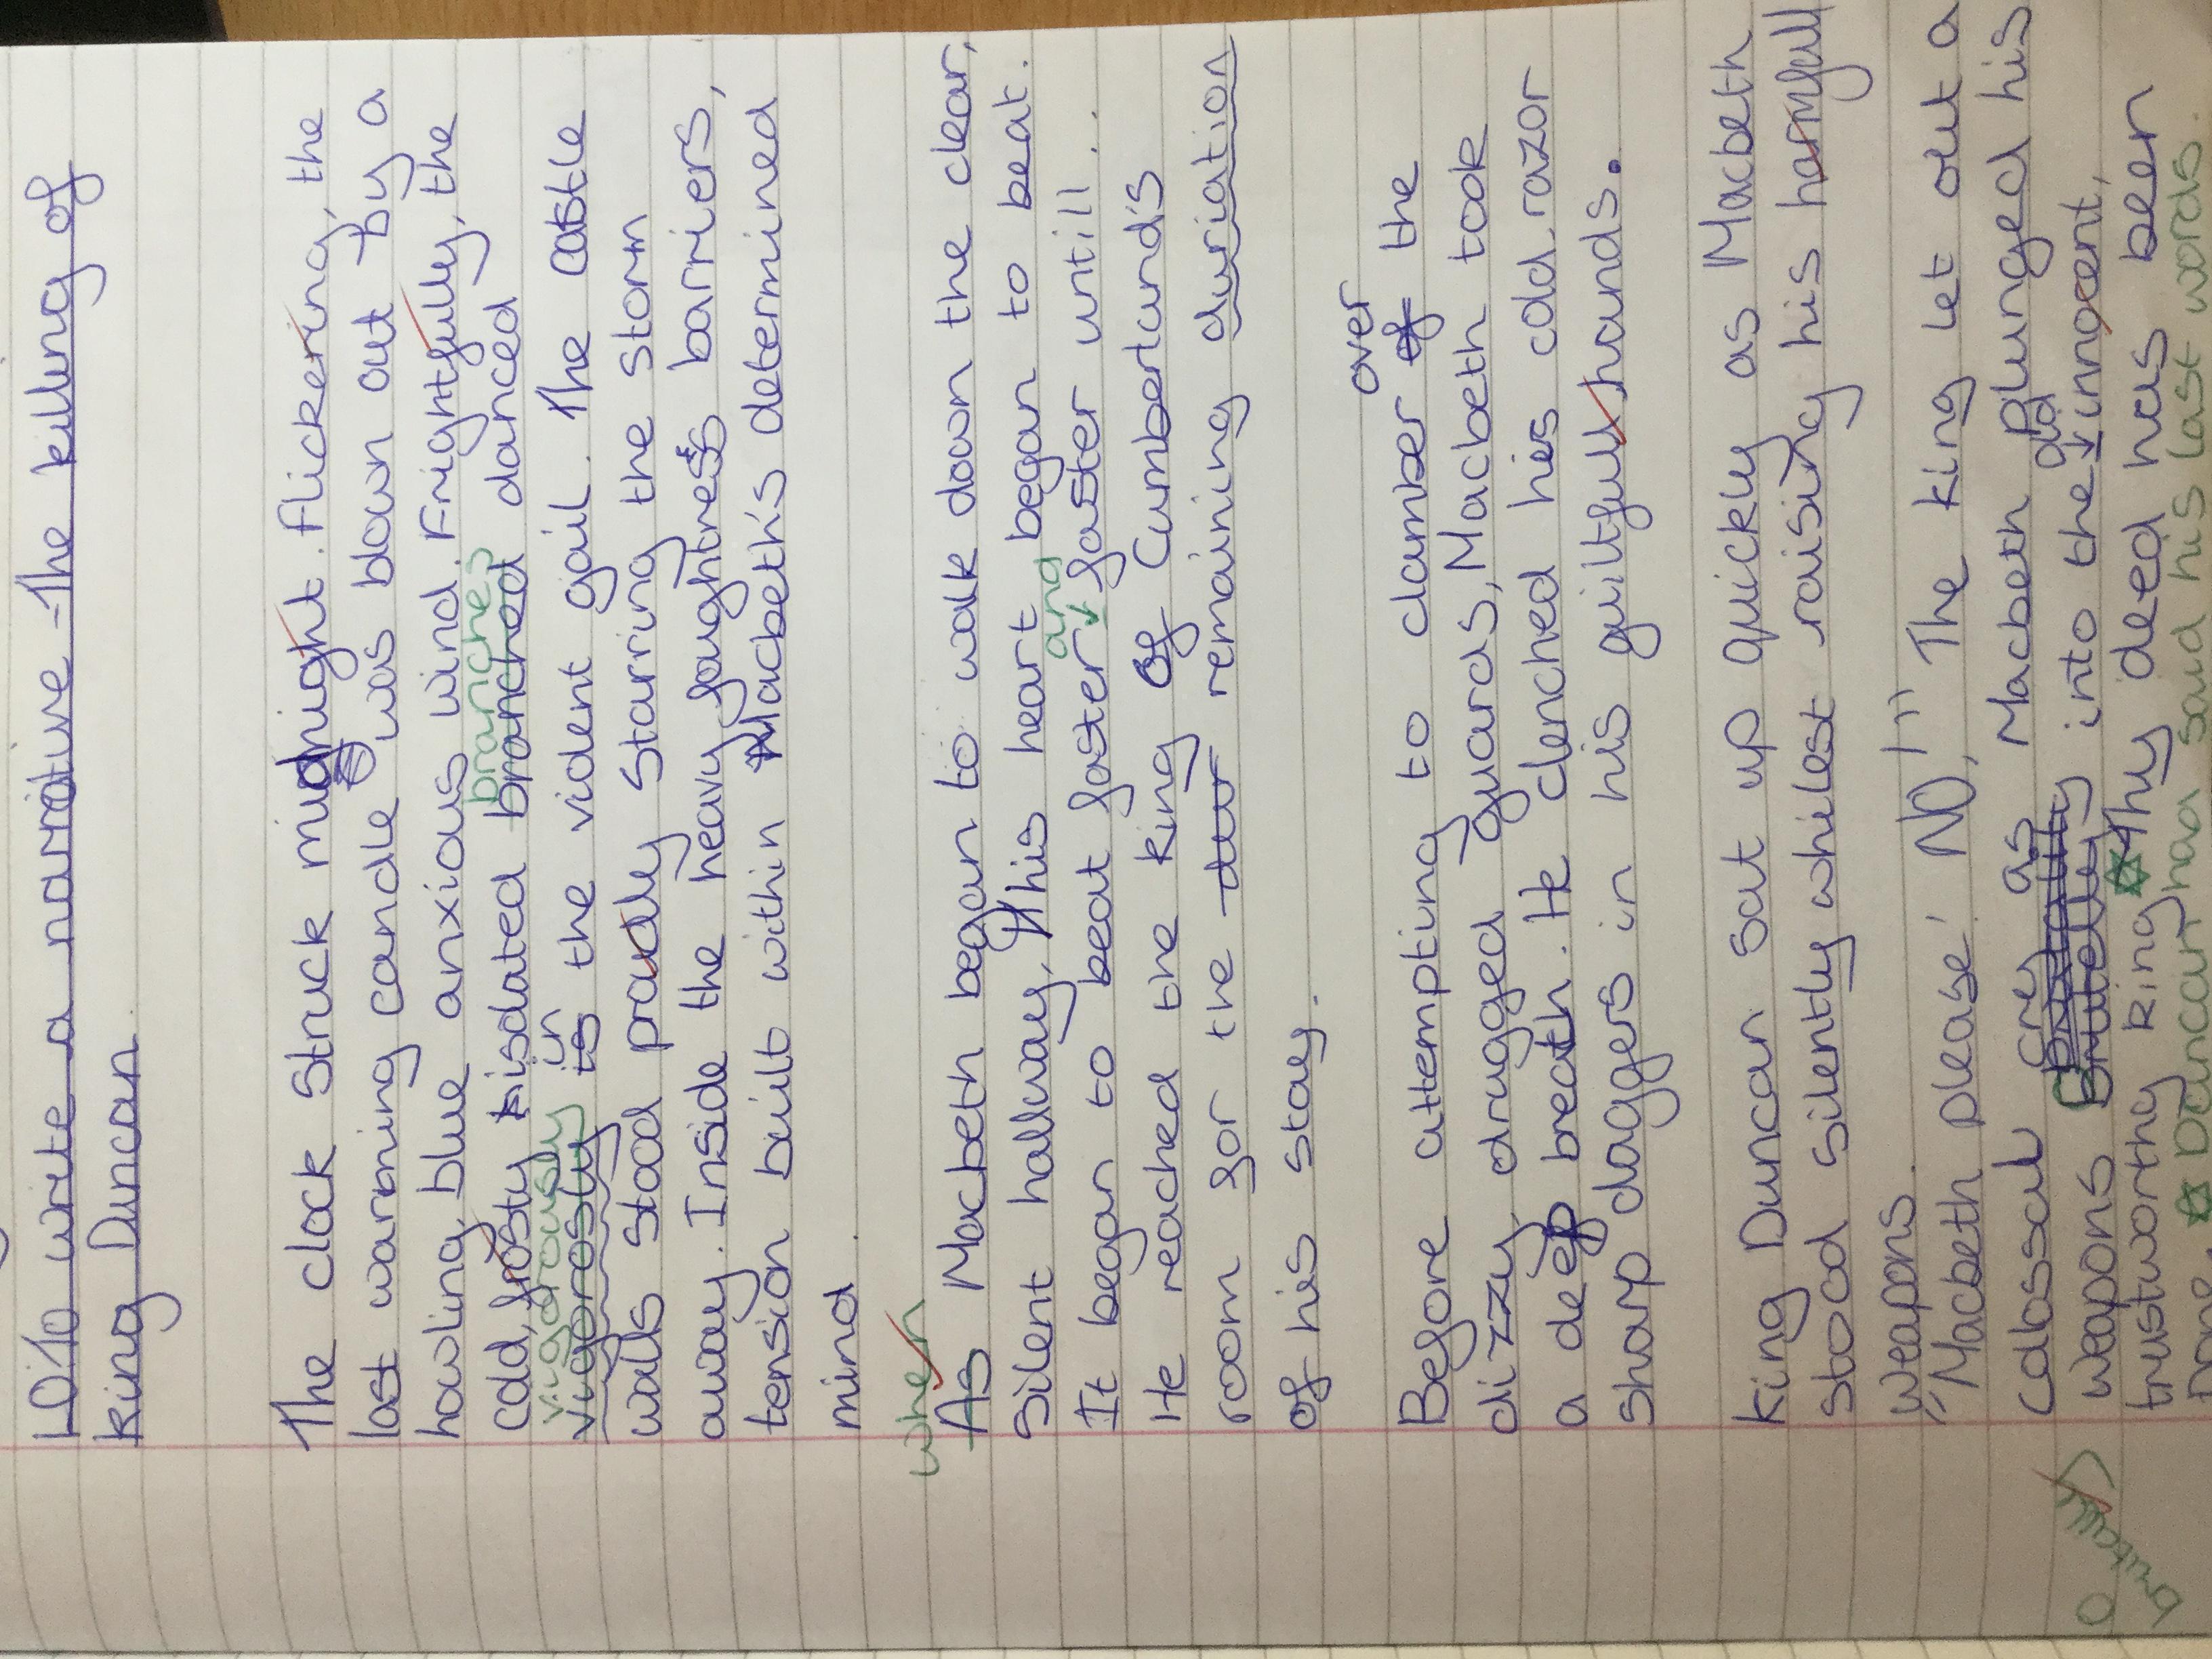 LO: To write a narrative - The killing of
King Duncan
The clock struck midnight. flickering, the
last warming candle was blown out by a
howling, blue anxious wind. Frightfully, the
branches
cold, frosty isolated branched danced
vigorously in
vigorosly to the violent gail. The castle
walls stood proudly starring the storm
away. Inside the heavy faughtress barriers,
tension built within Macbeth's determined
mind.
when
As Macbeth began to walk down the clear,
silent hallway, this heart began to beat.
and
It began to beat faster faster untill...
He reached the king of Cumberland's
room for the dur remaining duriation
of his stay.
over
Before attempting to clamber of the
dizzy drugged guards, Macbeth took
a deep breath. He clenched his cold, razor
sharp daggers in his guiltfull hands.
King Duncan sat up quickly as Macbeth
stood silently whilest raising his harmfull
weapons.
"Macbeth please! NO!" The king let out a
colossal cry as Macbeth plunged his
old
weapons brutelly into the innocent,
brutally
trustworthy king. Thy deed has been
Done. Duncan had said his last words.